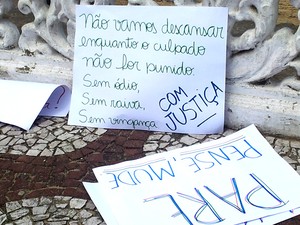 Não vamos descansar
enquanto o culpado
não for punido.
Sem ódio,
Sem raiva,
Sem vingança.
COM
JUSTIÇA
?
PARE
PENSE, MUDE